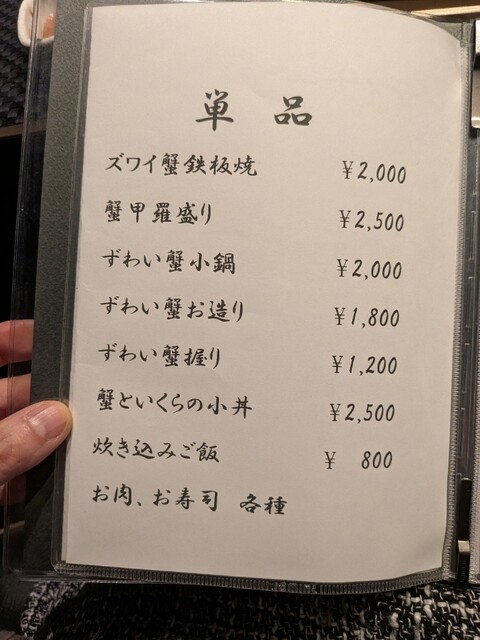 単 品
ズワイ蟹鉄板焼 ¥2,000
蟹甲羅盛り ¥2,500
ずわい蟹小鍋 ¥2,000
ずわい蟹お造り ¥1,800
ずわい蟹握り ¥1,200
蟹といくらの小丼 ¥2,500
炊き込みご飯 ¥ 800
お肉、お寿司 各種